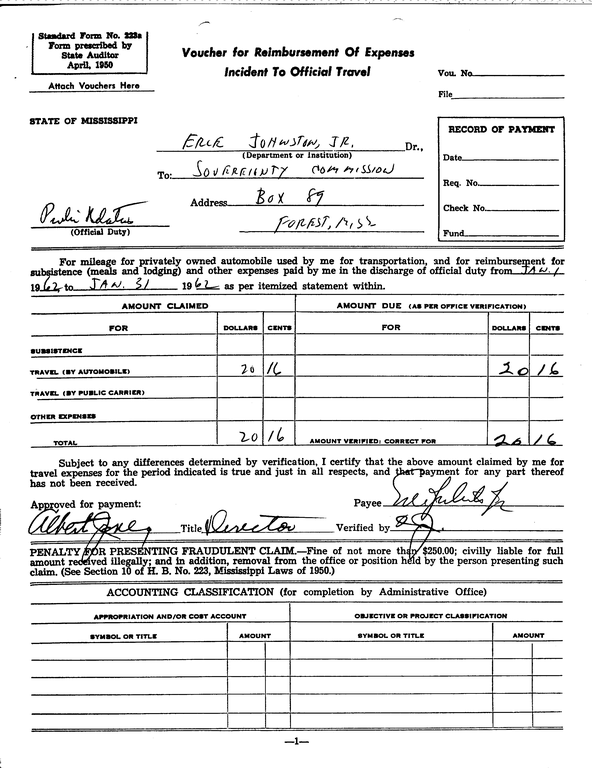 Standard Form No. 223a
Form prescribed by
State Auditor
April, 1950
Attach Vouchers Here
Voucher for Reimbursement Of Expenses
Incident To Official Travel
Vou. No.
File
STATE OF MISSISSIPPI
ERLE JOHNSTON, JR. Dr.,
(Department or Institution)
To: SOVEREIGNTY COMMISSION
Address BOX 89
FOREST, MISS
(Official Duty)
RECORD OF PAYMENT
Date
Req. No.
Check No.
Fund
For mileage for privately owned automobile used by me for transportation, and for reimbursement for
subsistence (meals and lodging) and other expenses paid by me in the discharge of official duty from JAN. 1
1962 to JAN. 31 1962 as per itemized statement within.
AMOUNT CLAIMED AMOUNT DUE (AS PER OFFICE VERIFICATION)
FOR DOLLARS CENTS FOR DOLLARS CENTS
SUBSISTENCE
TRAVEL (BY AUTOMOBILE) 20 16 20 16
TRAVEL (BY PUBLIC CARRIER)
OTHER EXPENSES
TOTAL 20 16 AMOUNT VERIFIED: CORRECT FOR 20 16
Subject to any differences determined by verification, I certify that the above amount claimed by me for
travel expenses for the period indicated is true and just in all respects, and that payment for any part thereof
has not been received.
Approved for payment: Payee
Albert Jones Title Director Verified by
PENALTY FOR PRESENTING FRAUDULENT CLAIM.—Fine of not more than $250.00; civilly liable for full
amount received illegally; and in addition, removal from the office or position held by the person presenting such
claim. (See Section 10 of H. B. No. 223, Mississippi Laws of 1950.)
ACCOUNTING CLASSIFICATION (for completion by Administrative Office)
APPROPRIATION AND/OR COST ACCOUNT OBJECTIVE OR PROJECT CLASSIFICATION
SYMBOL OR TITLE AMOUNT SYMBOL OR TITLE AMOUNT
—1—